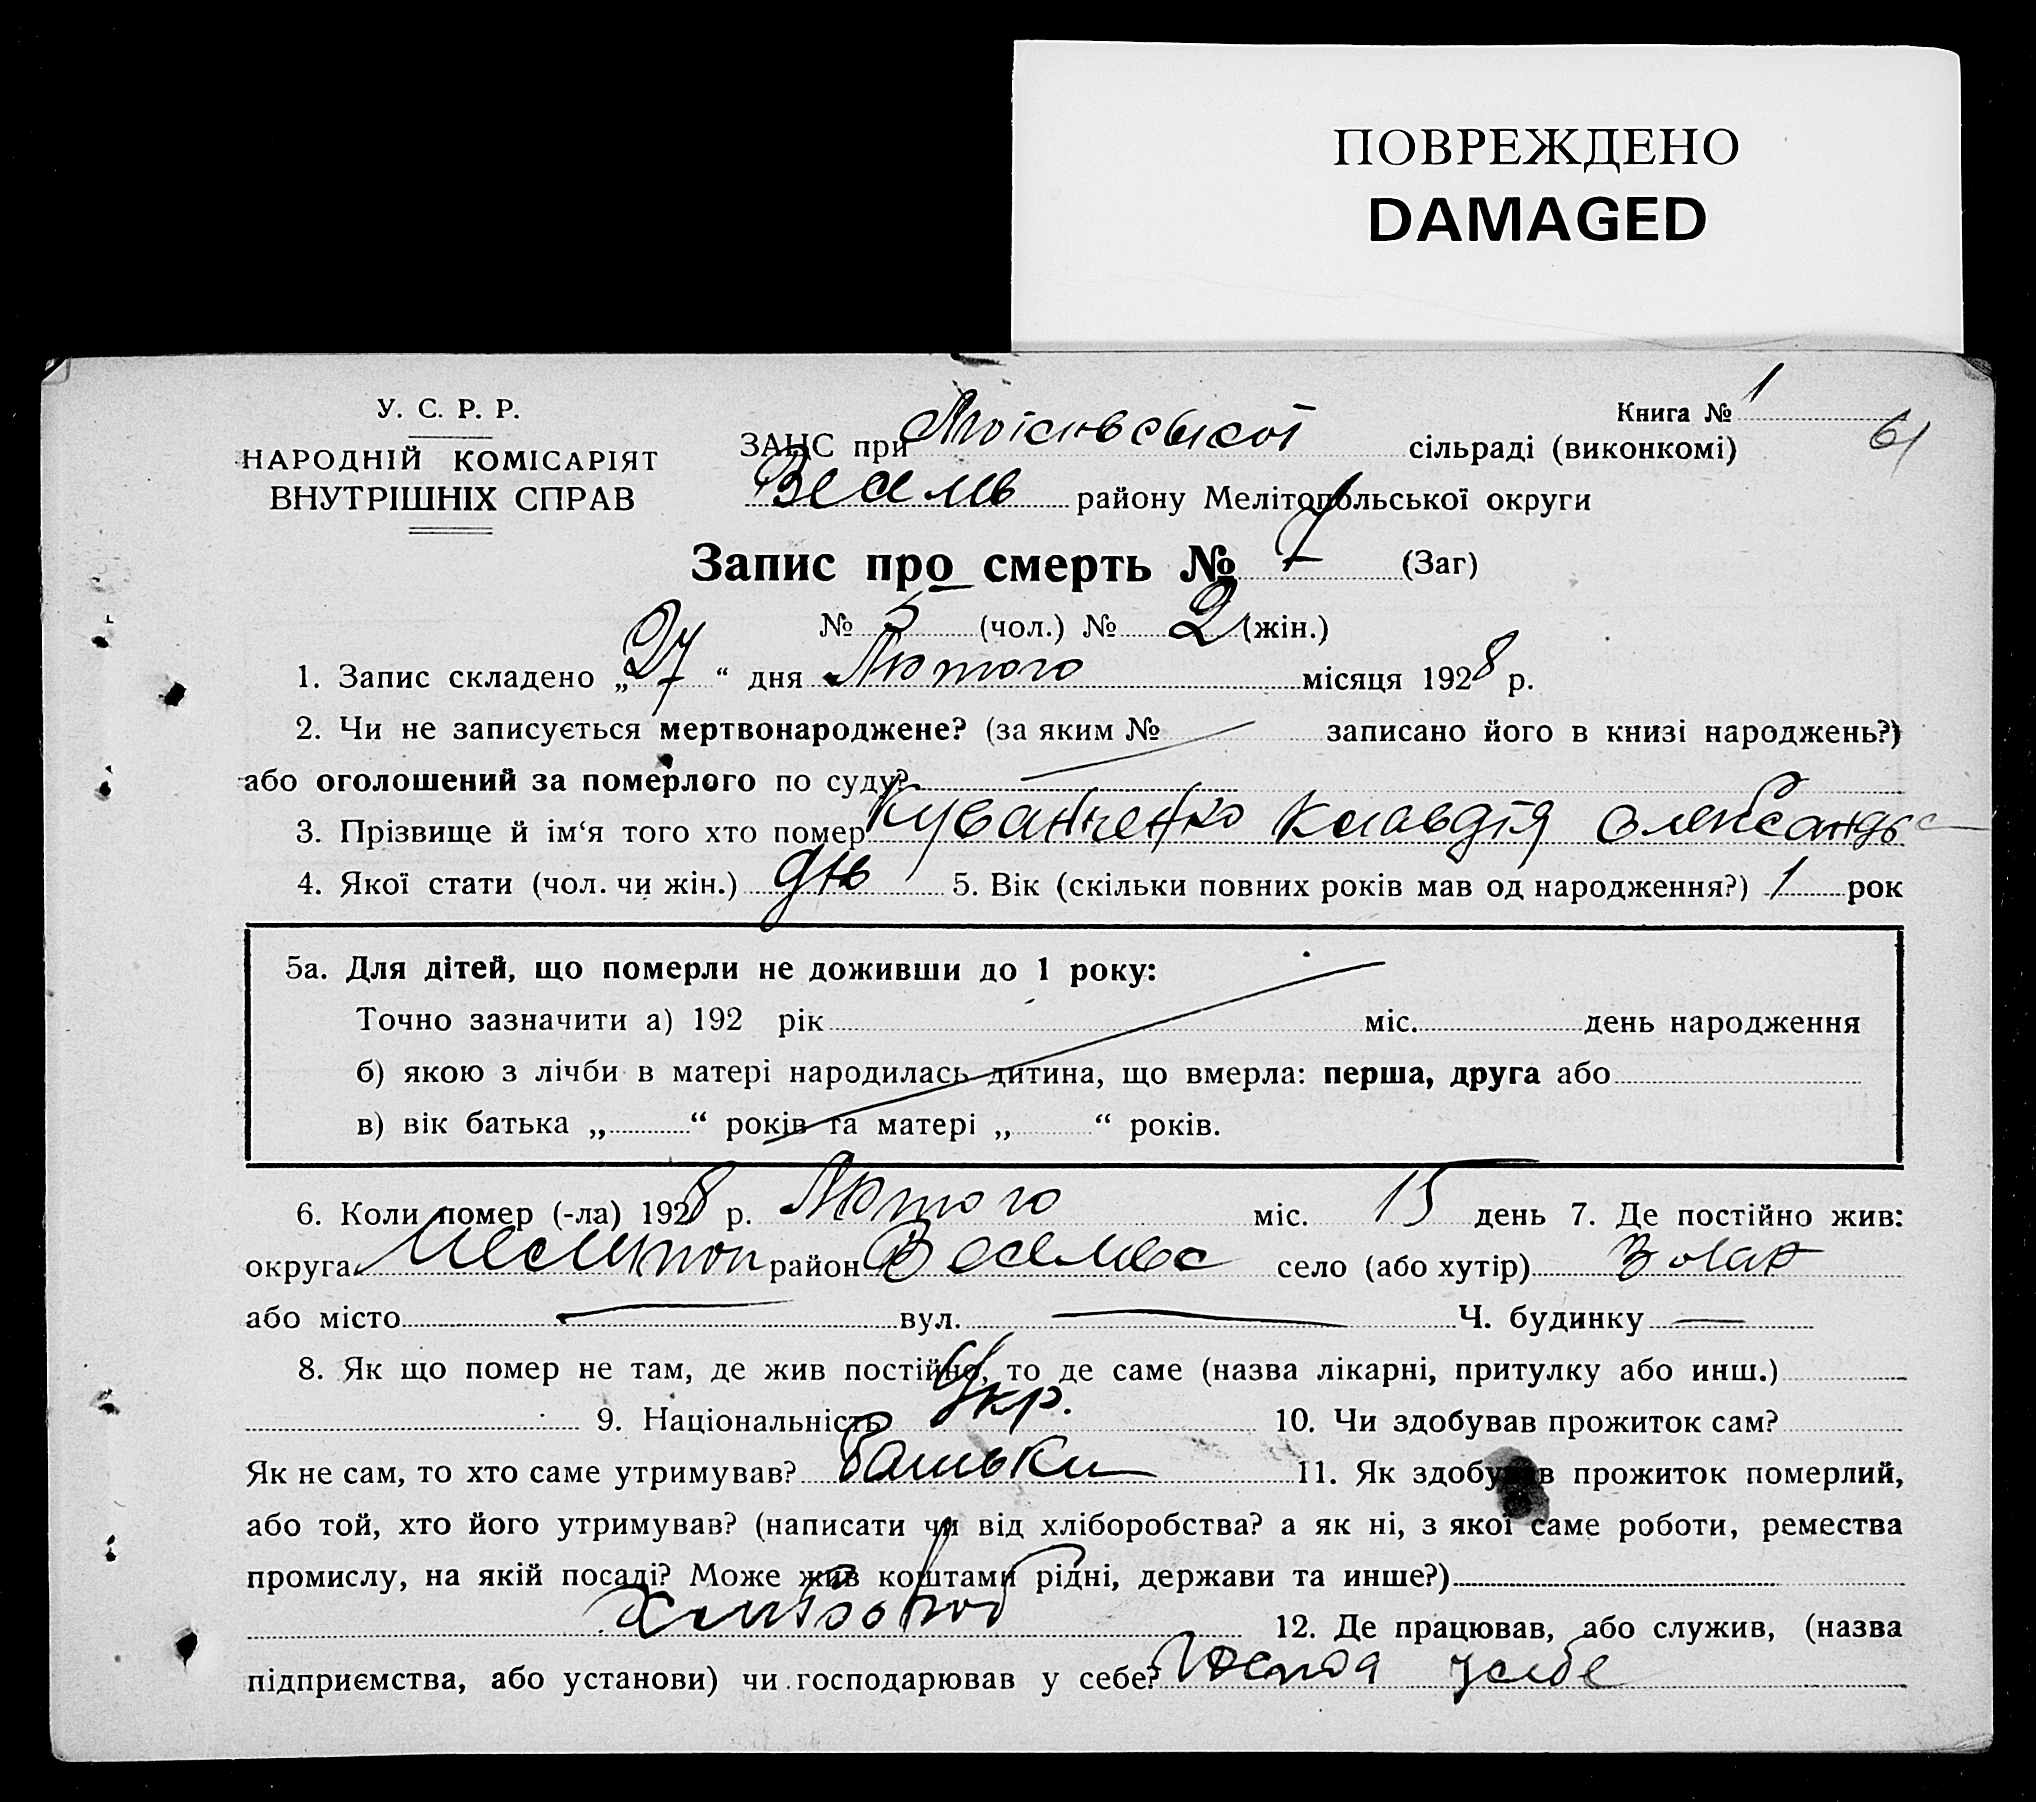 ПОВРЕЖДЕНО
DAMAGED
У. С. Р. Р.
НАРОДНІЙ КОМІСАРІЯТ
ВНУТРІШНІХ СПРАВ
Книга № 1
61
ЗАНС при сільраді (виконкомі)
Весели району Мелітопольської округи
Запис про смерть № 7 (Заг)
№ 5 (чол.) № 2 (жін.)
1. Запис складено „27“ дня Лютого місяця 1928 р.
2. Чи не записується мертвонароджене? (за яким № записано його в книзі народжень?)
або оголошений за померлого по суду?
3. Прізвище й ім‘я того хто помер Клавдія Олександ
4. Якої стати (чол. чи жін.) 5. Вік (скільки повних років мав од народження?) 1 рок
5а. Для дітей, що померли не доживши до 1 року:
Точно зазначити а) 192 рік міс. день народження
б) якою з лічби в матері народилась дитина, що вмерла: перша, друга або
в) вік батька „ “ років та матері „ “ років.
6. Коли помер (-ла) 1928 р. Лютого міс. 15 день 7. Де постійно жив:
округа Мелитоп район село (або хутір)
або місто — вул. — Ч. будинку —
8. Як що помер не там, де жив постійно, то де саме (назва лікарні, притулку або инш.)
9. Національність Укр. 10. Чи здобував прожиток сам?
Як не сам, то хто саме утримував? батьки 11. Як здобував прожиток померлий,
або той, хто його утримував? (написати чи від хліборобства? а як ні, з якої саме роботи, ремества
промислу, на якій посаді? Може жив коштами рідні, держави та инше?)
хлібороб 12. Де працював, або служив, (назва
підприємства, або установи) чи господарював у себе? у себе